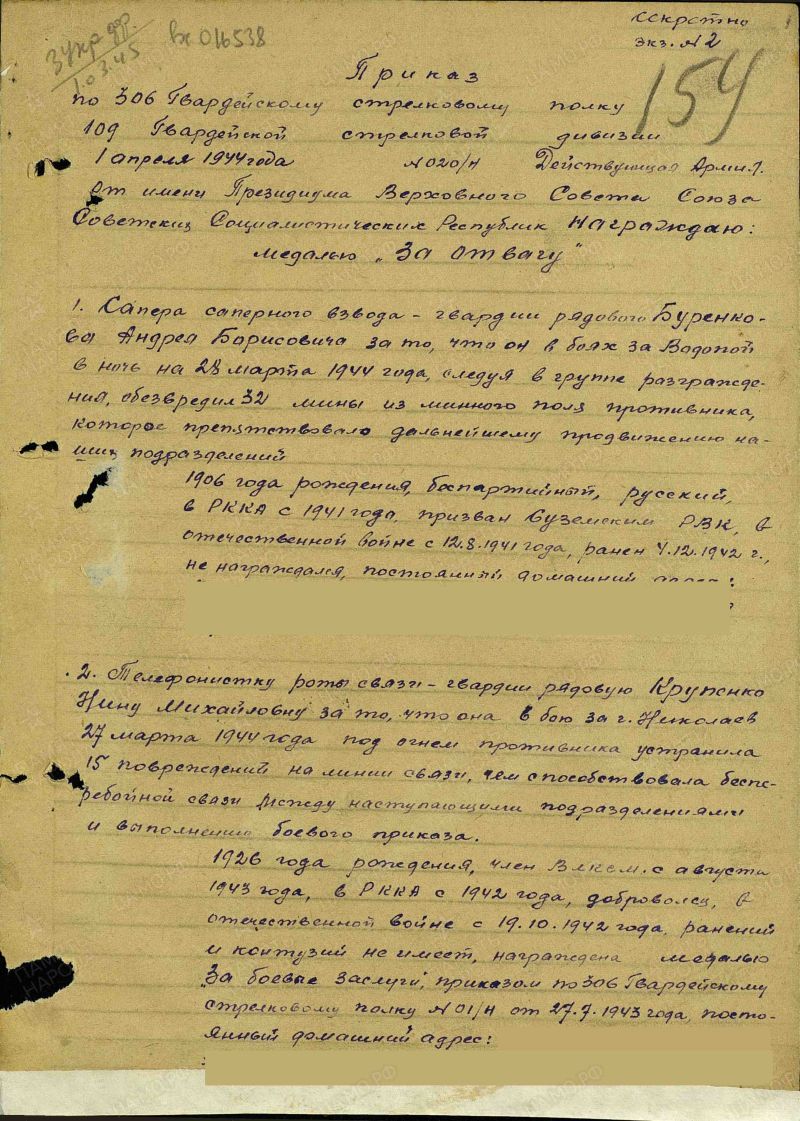 секретно
экз. № 2
3 Укр фр.
1.03.45
вх 016538
154
Приказ
по 306 Гвардейскому стрелковому полку
109 Гвардейской стрелковой дивизии
1 апреля 1944 года № 020/Н Действующая Армия.
От имени Президиума Верховного Совета Союза
Советских Социалистических Республик награждаю:
медалью „За отвагу"
1. Сапера саперного взвода – гвардии рядового Буренко-
ва Андрея Борисовича за то, что он в боях за Водопой
в ночь на 28 марта 1944 года, следуя в группе разгражде-
ния, обезвредил 32 мины из минного поля противника,
которое препятствовало дальнейшему продвижению на-
ших подразделений
1906 года рождения, беспартийный, русский,
в РККА с 1941 года, призван Суземским РВК, в
отечественной войне с 12.8.1941 года, ранен 4.12.1942 г.,
не награждался, постоянный домашний
2. Телефонистку роты связи – гвардии рядовую Крупенко
Нину Михайловну за то, что она в бою за г. Николаев
27 марта 1944 года под огнем противника устранила
15 повреждений на линии связи, чем способствовала беспе-
ребойной связи между наступающими подразделениями
и выполнению боевого приказа.
1926 года рождения, член ВЛКСМ. с августа
1943 года, в РККА с 1942 года, доброволец, в
отечественной войне с 19.10.1942 года, ранений
и контузий не имеет, награждена медалью
За боевые заслуги", приказом по 306 Гвардейскому
стрелковому полку № 01/Н от 27.7.1943 года, посто-
янный домашний адрес: